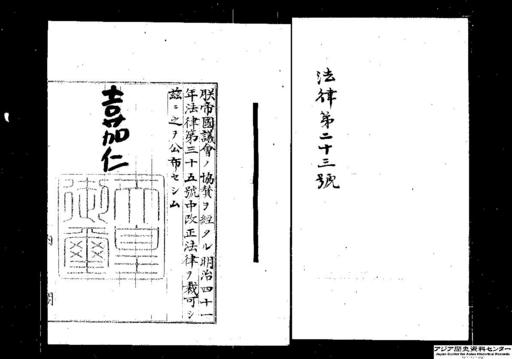 法律第二十三號
朕帝國議會ノ協賛ヲ經タル明治四十一
年法律第三十五號中改正法律ヲ裁可シ
玆ニ之ヲ公布セシム
嘉仁
天皇
御璽
内
閣
アジア歴史資料センター
Japan Center for Asian Historical Records